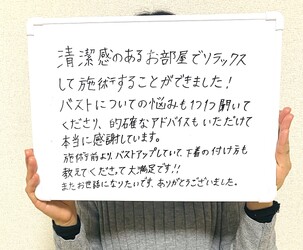 清潔感のあるお部屋でリラックス
して施術することができました!
バストについての悩みも1つ1つ聞いて
くださり、的確なアドバイスもいただけて
本当に感謝しています。
施術前より、バストアップしていて、下着の付け方も
教えてくださって大満足です!!
またお世話になりたいです、ありがとうございました。